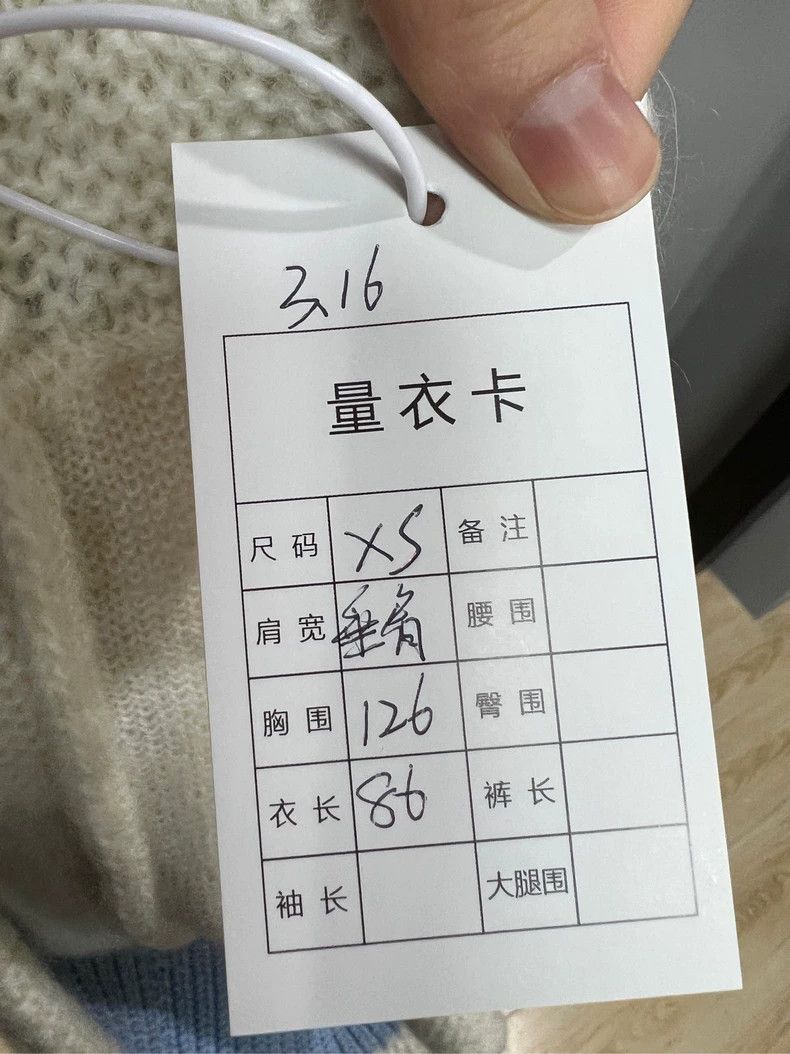 3.16
量衣卡
尺码 XS 备注
肩宽 垂肩 腰围
胸围 126 臀围
衣长 86 裤长
袖长 大腿围